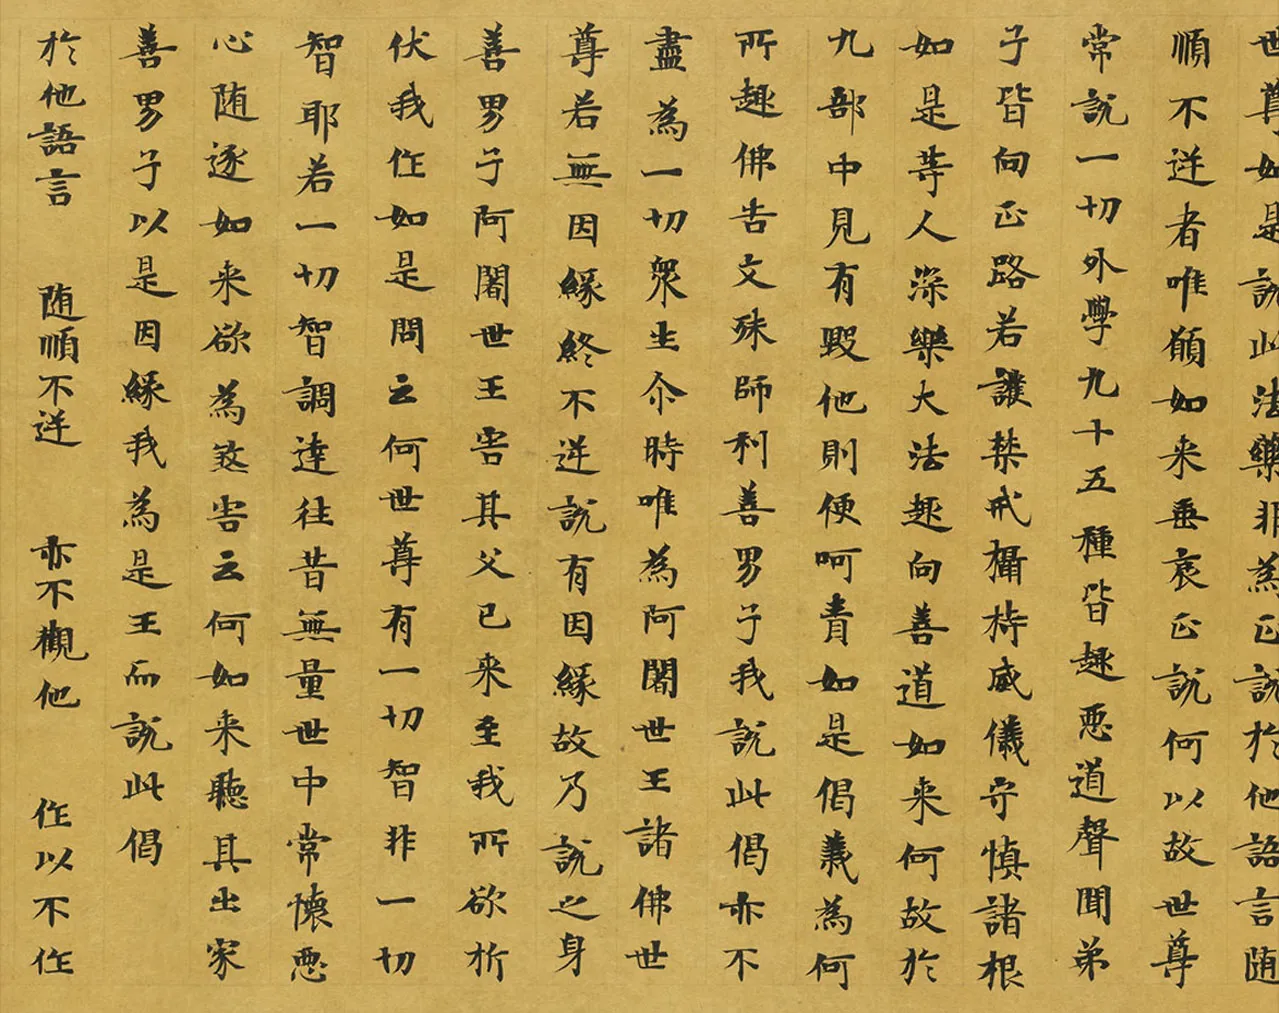 世尊如是說此法藥非為正說於他語言随
順不逆者唯願如来垂哀正說何以故世尊
常說一切外學九十五種皆趣惡道聲聞弟
子皆向正路若護禁戒攝持威儀守慎諸根
如是等人深樂大法趣向善道如来何故於
九部中見有毀他則便呵責如是偈義為何
所趣佛告文殊師利善男子我說此偈亦不
盡為一切眾生尒時唯為阿闍世王諸佛世
尊若無因緣終不逆說有因緣故乃說之身
善男子阿闍世王害其父已来至我所欲析
伏我作如是問云何世尊有一切智非一切
智耶若一切智調達往昔無量世中常懷惡
心随逐如来欲為煞害云何如来聽其出家
善男子以是因緣我為是王而說此偈
於他語言 随順不逆 亦不觀他 作以不作